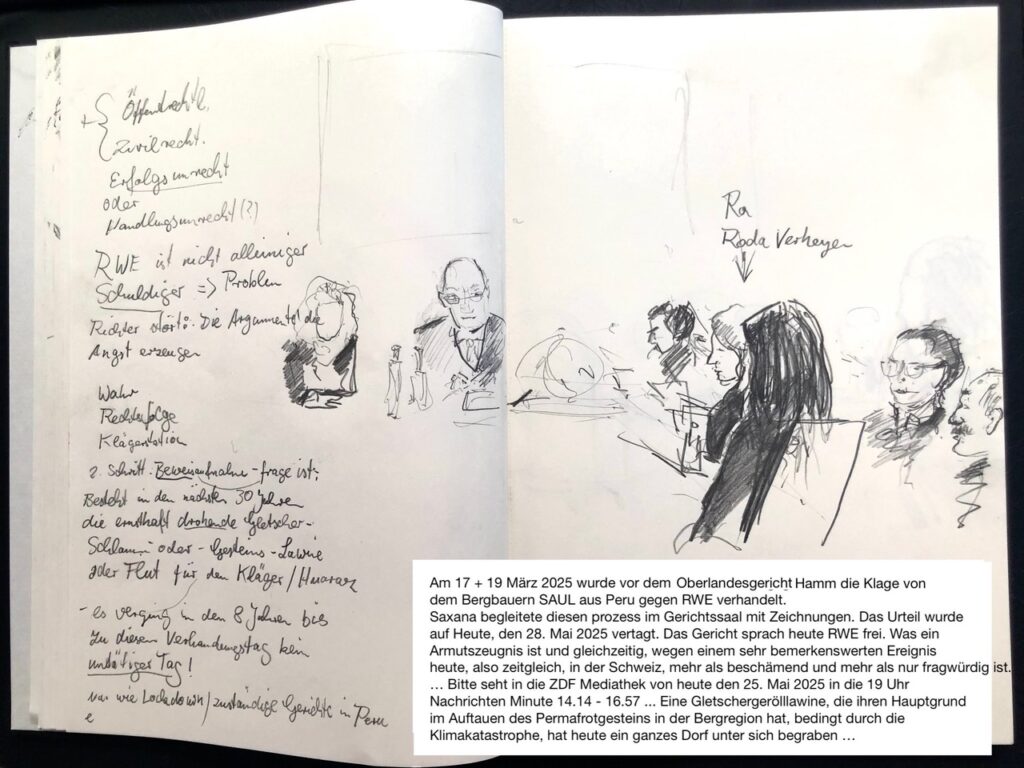 + { Öffentrechtl.
Zivilrecht.
Erfolgsunrecht
oder
Handlungsunrecht (?)
RWE ist nicht alleiniger
Schuldiger => Problem
Richter stört: Die Argumente die
Angst erzeugen
Wahr
Rechtsfolge
2. Schritt. Beweisaufnahme-frage ist:
Besteht in den nächsten 30 Jahre
die ernsthaft drohende Gletscher-
Schlamm oder - Gesteins - Lawine
oder Flut für den Kläger / Huaraz
- es verging in den 8 Jahren bis
zu diesem Verhandlungstag kein
untätiger Tag!
wie Lockdown / zuständige Gerichte in Peru
Ra
Roda Verheyen
Am 17 + 19 März 2025 wurde vor dem Oberlandesgericht Hamm die Klage von
dem Bergbauern SAUL aus Peru gegen RWE verhandelt.
Saxana begleitete diesen prozess im Gerichtssaal mit Zeichnungen. Das Urteil wurde
auf Heute, den 28. Mai 2025 vertagt. Das Gericht sprach heute RWE frei. Was ein
Armutszeugnis ist und gleichzeitig, wegen einem sehr bemerkenswerten Ereignis
heute, also zeitgleich, in der Schweiz, mehr als beschämend und mehr als nur fragwürdig ist.
... Bitte seht in die ZDF Mediathek von heute den 25. Mai 2025 in die 19 Uhr
Nachrichten Minute 14.14 - 16.57 ... Eine Gletschergerölllawine, die ihren Hauptgrund
im Auftauen des Permafrotgesteins in der Bergregion hat, bedingt durch die
Klimakatastrophe, hat heute ein ganzes Dorf unter sich begraben ...